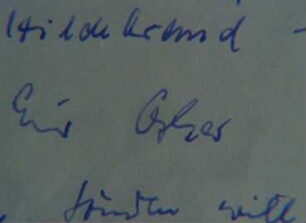 Hildebrand -
Ein Opfer
, sondern will